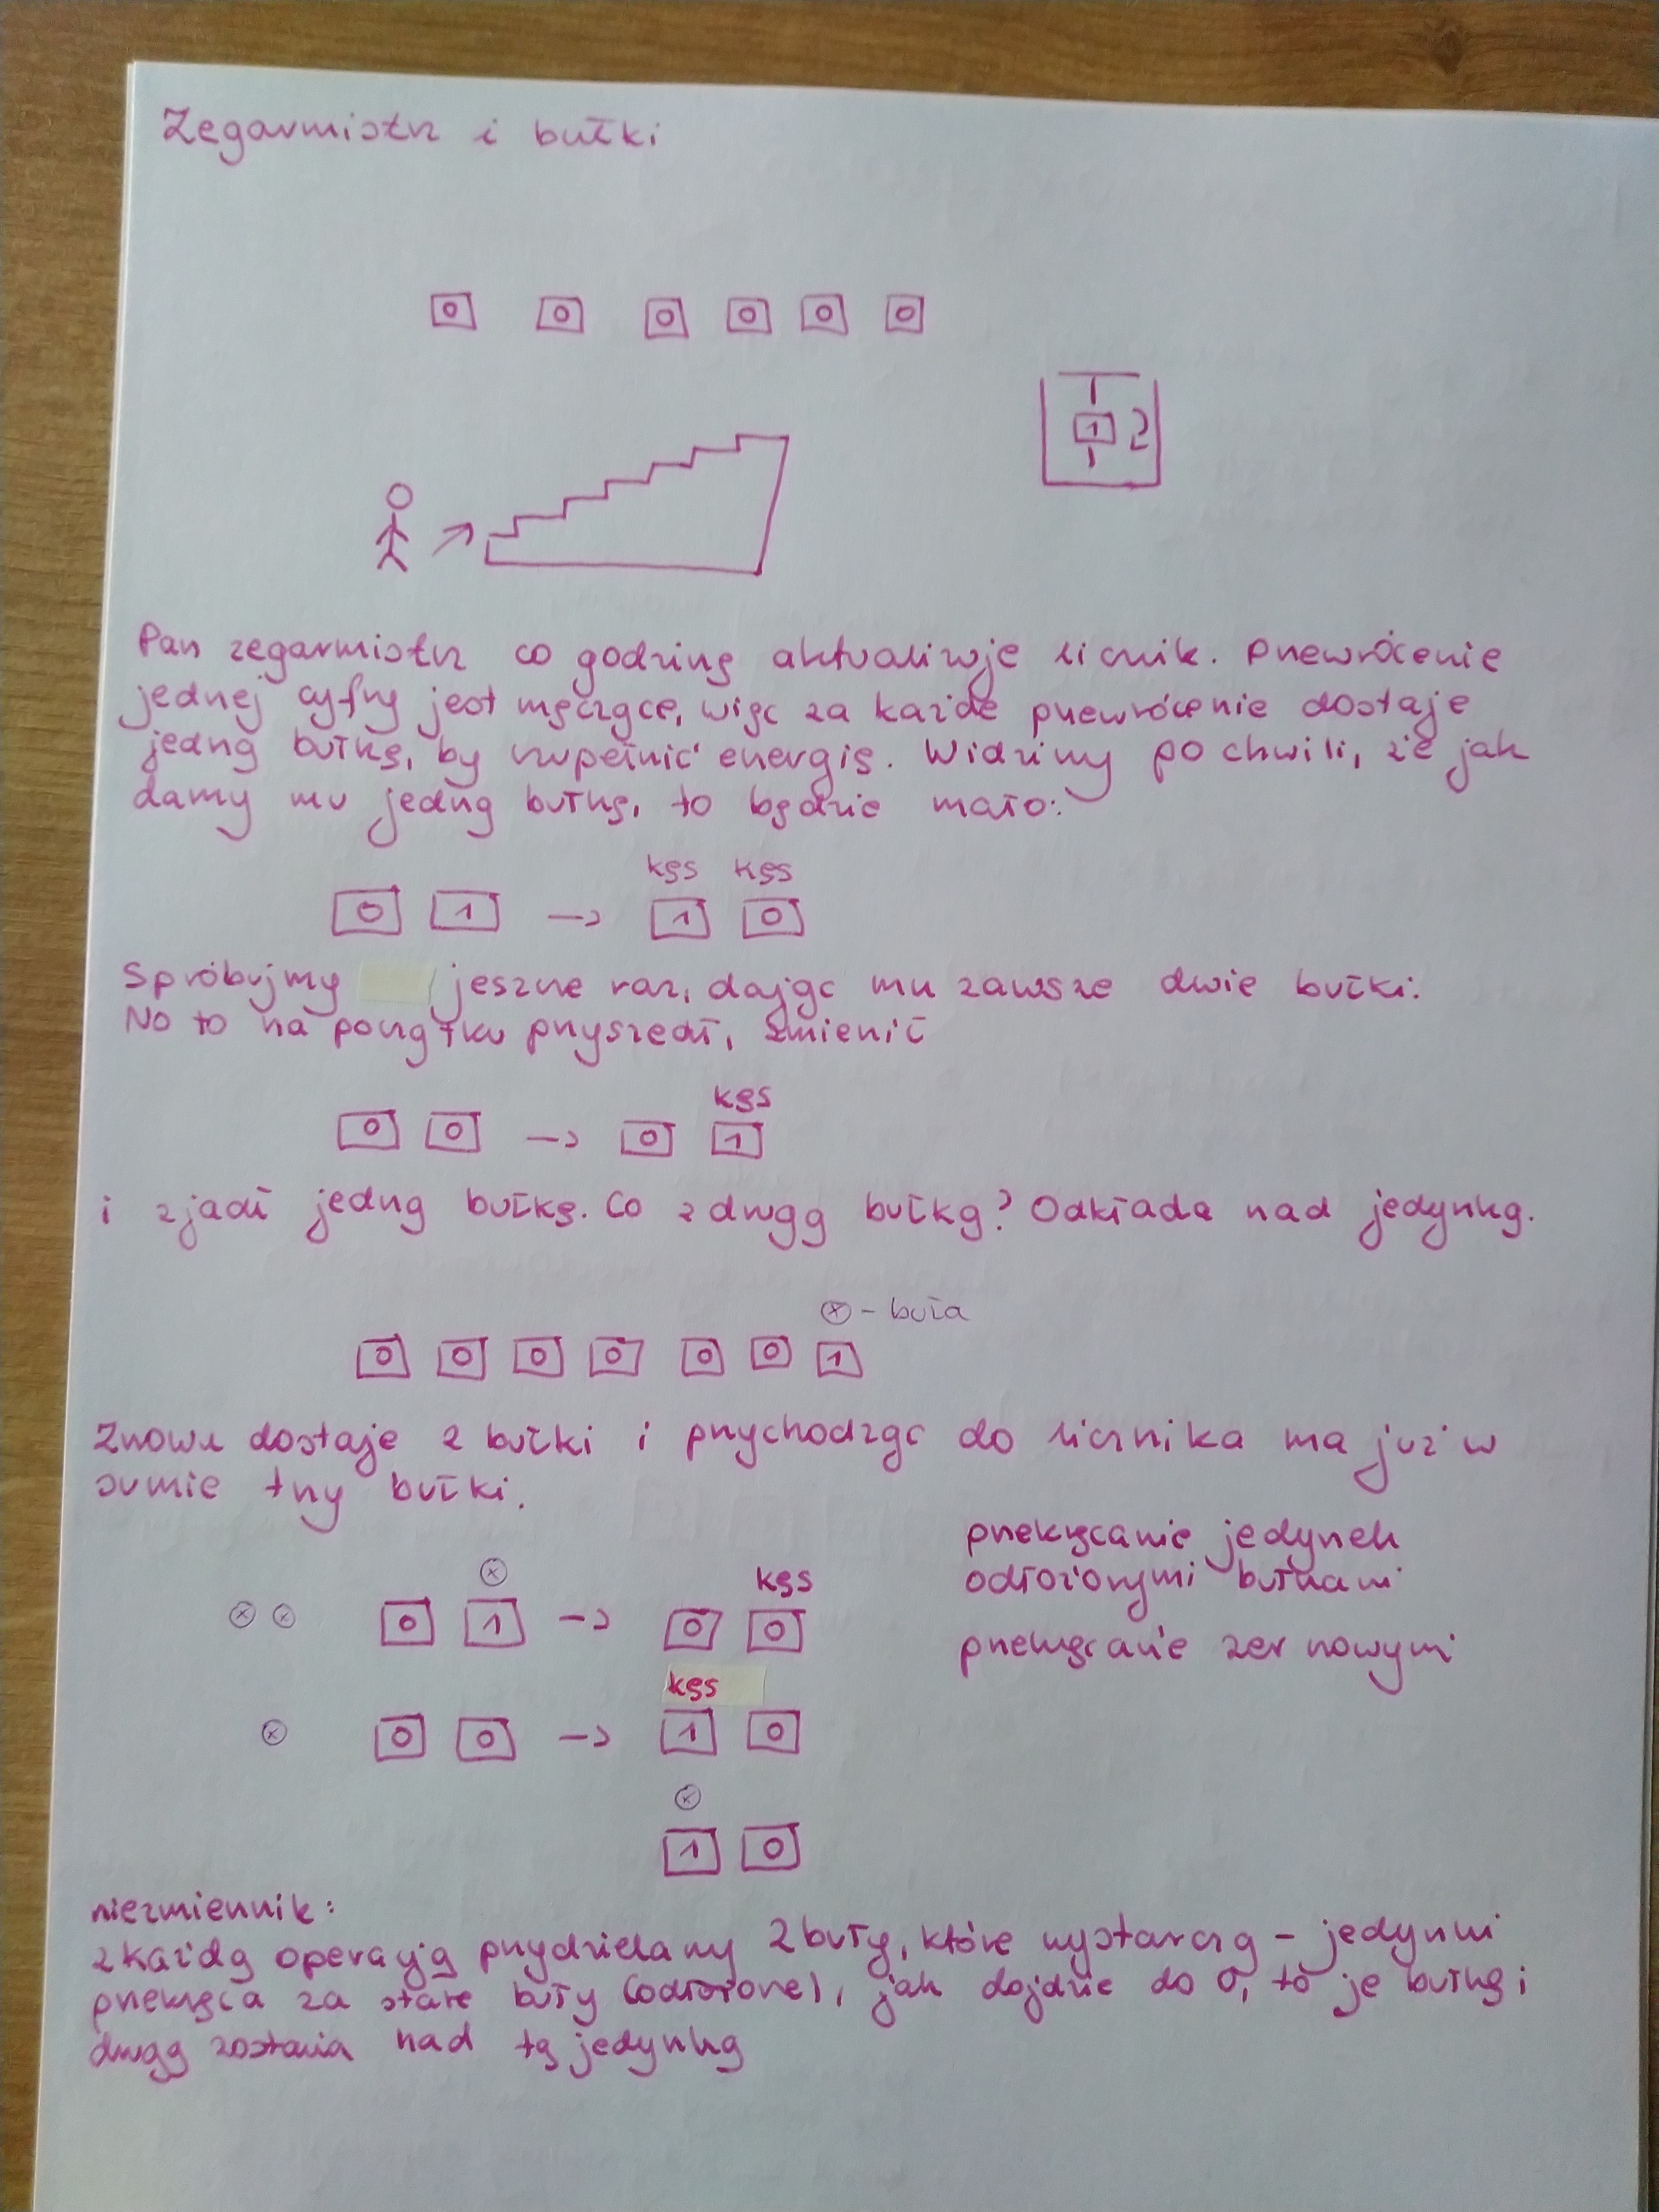 Zegarmistrz i bułki
0 0 0 0 0 0
1 2
Pan zegarmistrz co godzinę aktualizuje licznik. Przewrócenie
jednej cyfry jest męczące, więc za każde przewrócenie dostaje
jedną bułkę, by uzupełnić energię. Widzimy po chwili, że jak
damy mu jedną bułkę, to będzie mało:
kęs kęs
0 1 → 1 0
Spróbujmy jeszcze raz, dając mu zawsze dwie bułki.
No to na początku przyszedł, zmienił
kęs
0 0 → 0 1
i zjadł jedną bułkę. Co z drugą bułką? Odkłada nad jedynką.
ⓧ - buła
0 0 0 0 0 0 1
Znowu dostaje 2 bułki i przychodząc do licznika ma już w
sumie trzy bułki.
przekręcanie jedynek
odłożonymi bułkami
przekręcanie zer nowymi
ⓧ kęs
ⓧ ⓧ 0 1 → 0 0
kęs
ⓧ 0 0 → 1 0
ⓧ
1 0
niezmiennik:
z każdą operacją przydzielamy 2 buły, które wystarczą – jedynki
przekręca za stare buły (odłożone), jak dojdzie do 0, to je bułkę i
drugą zostawia nad tą jedynką